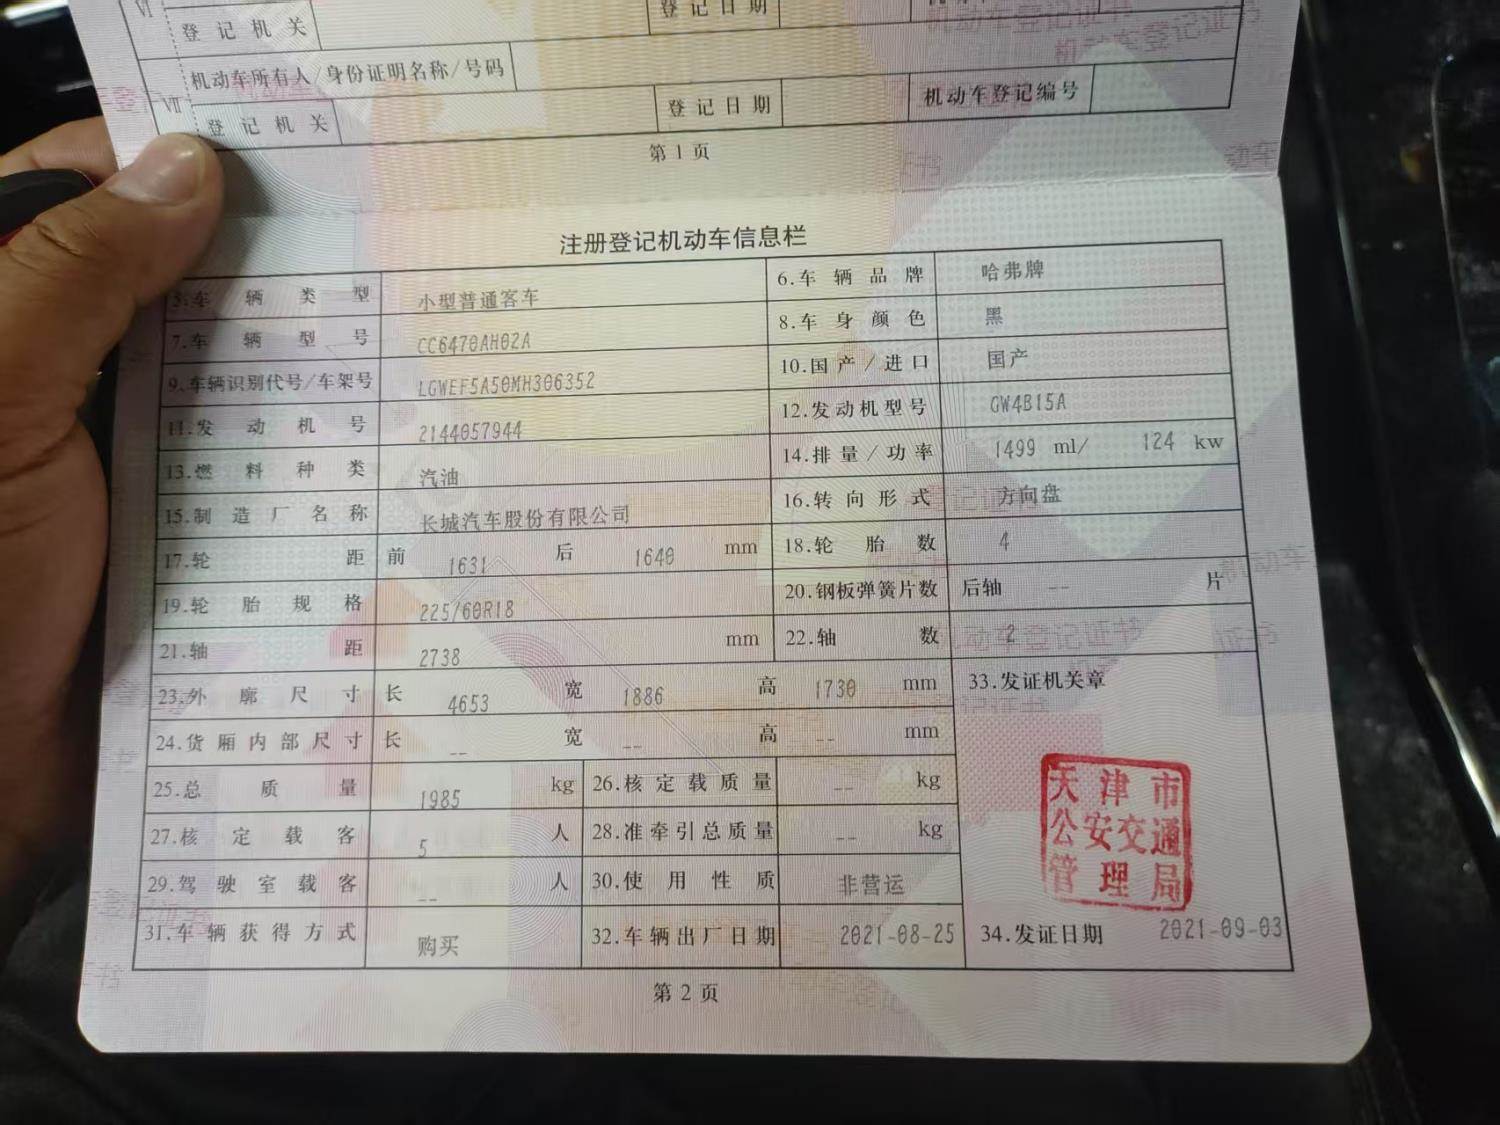 VI 登记机关 登记日期
机动车所有人/身份证明名称/号码
VII 登记机关 登记日期 机动车登记编号
第 1 页
注册登记机动车信息栏
5.车辆类型 小型普通客车 6.车辆品牌 哈弗牌
7.车辆型号 CC6470AH02A 8.车身颜色 黑
9.车辆识别代号/车架号 LGWEF5A50MH306352 10.国产/进口 国产
11.发动机号 2144057944 12.发动机型号 GW4B15A
13.燃料种类 汽油 14.排量/功率 1499 ml/ 124 kw
15.制造厂名称 长城汽车股份有限公司 16.转向形式 方向盘
17.轮距 前 1631 后 1640 mm 18.轮胎数 4
19.轮胎规格 225/60R18 20.钢板弹簧片数 后轴 -- 片
21.轴距 2738 mm 22.轴数 2
23.外廓尺寸 长 4653 宽 1886 高 1730 mm 33.发证机关章
24.货厢内部尺寸 长 -- 宽 -- 高 -- mm
25.总质量 1985 kg 26.核定载质量 -- kg
27.核定载客 5 人 28.准牵引总质量 -- kg
29.驾驶室载客 -- 人 30.使用性质 非营运
31.车辆获得方式 购买 32.车辆出厂日期 2021-08-25 34.发证日期 2021-09-03
天津市
公安交通
管理局
第 2 页